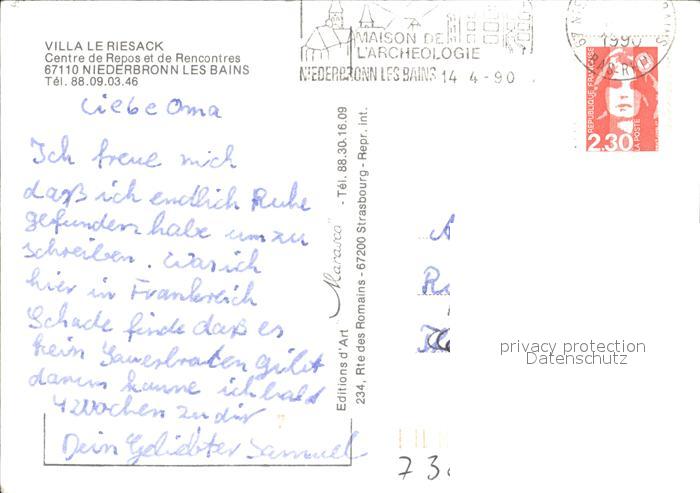 VILLA LE RIESACK
Centre de Repos et de Rencontres
67110 NIEDERBRONN LES BAINS
Tél. 88.09.03.46
Liebe Oma
Ich freue mich
daß ich endlich Ruhe
gefunden habe um zu
schreiben. Was ich
hier in Frankreich
Schade finde daß es
kein Sauerbraten gibt
darum komme ich bald
4 Wochen zu dir
Dein Geliebter Samuel
Editions d'Art "Marasco" - Tél. 88.30.16.09
234, Rte des Romains - 67200 Strasbourg - Repr. int.
MAISON DE
L'ARCHEOLOGIE
NIEDERBRONN LES BAINS 14 4 - 90
1990
BAS-RHIN
REPUBLIQUE FRANÇAISE
2,30
LA POSTE
privacy protection
Datenschutz
73